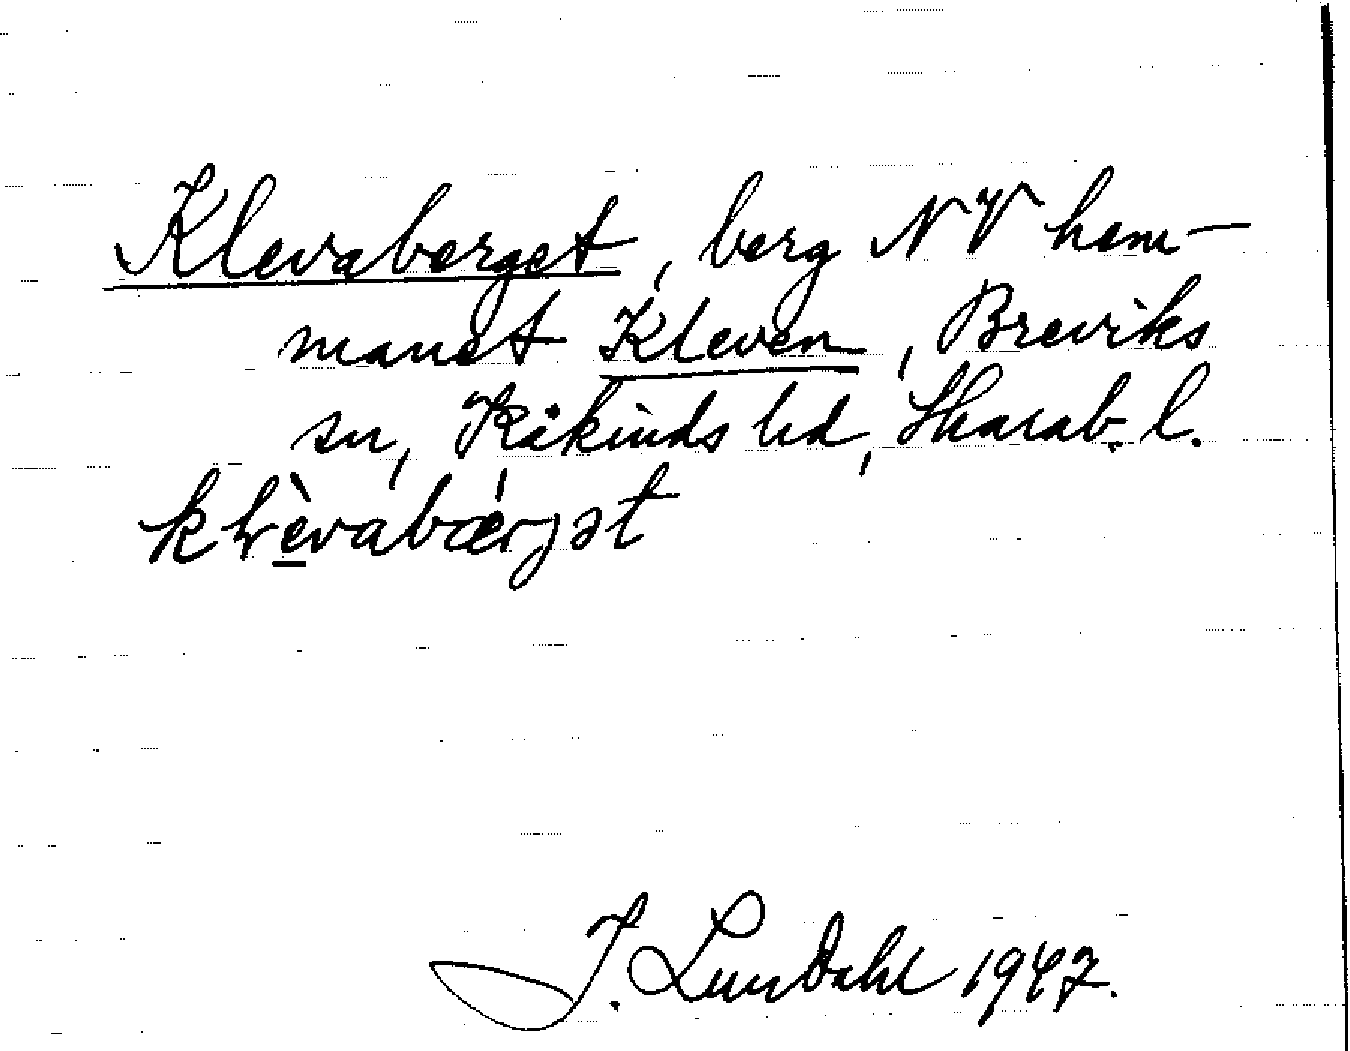 Klevaberget, berg NV hem-
manet Kleven, Breviks
sn, Kåkinds hd, Skarab. l.
klèvabærjət
J. Lundahl 1947.